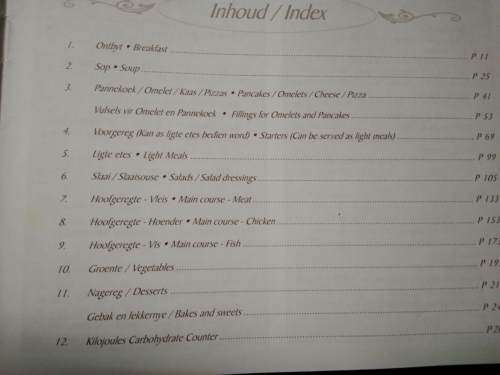 Inhoud / Index
1. Ontbyt • Breakfast P 11
2. Sop • Soup P 25
3. Pannekoek / Omelet / Kaas / Pizzas • Pancakes / Omelets / Cheese / Pizza P 41
Vulsels vir Omelet en Pannekoek • Fillings for Omelets and Pancakes P 53
4. Voorgereg (Kan as ligte etes bedien word) • Starters (Can be served as light meals) P 69
5. Ligte etes • Light Meals P 99
6. Slaai / Slaaisouse • Salads / Salad dressings P 105
7. Hoofgeregte - Vleis • Main course - Meat P 133
8. Hoofgeregte - Hoender • Main course - Chicken P 153
9. Hoofgeregte - Vis • Main course - Fish P 173
10. Groente / Vegetables P 19
11. Nagereg / Desserts P 21
Gebak en lekkernye / Bakes and sweets P 24
12. Kilojoules Carbohydrate Counter P 26